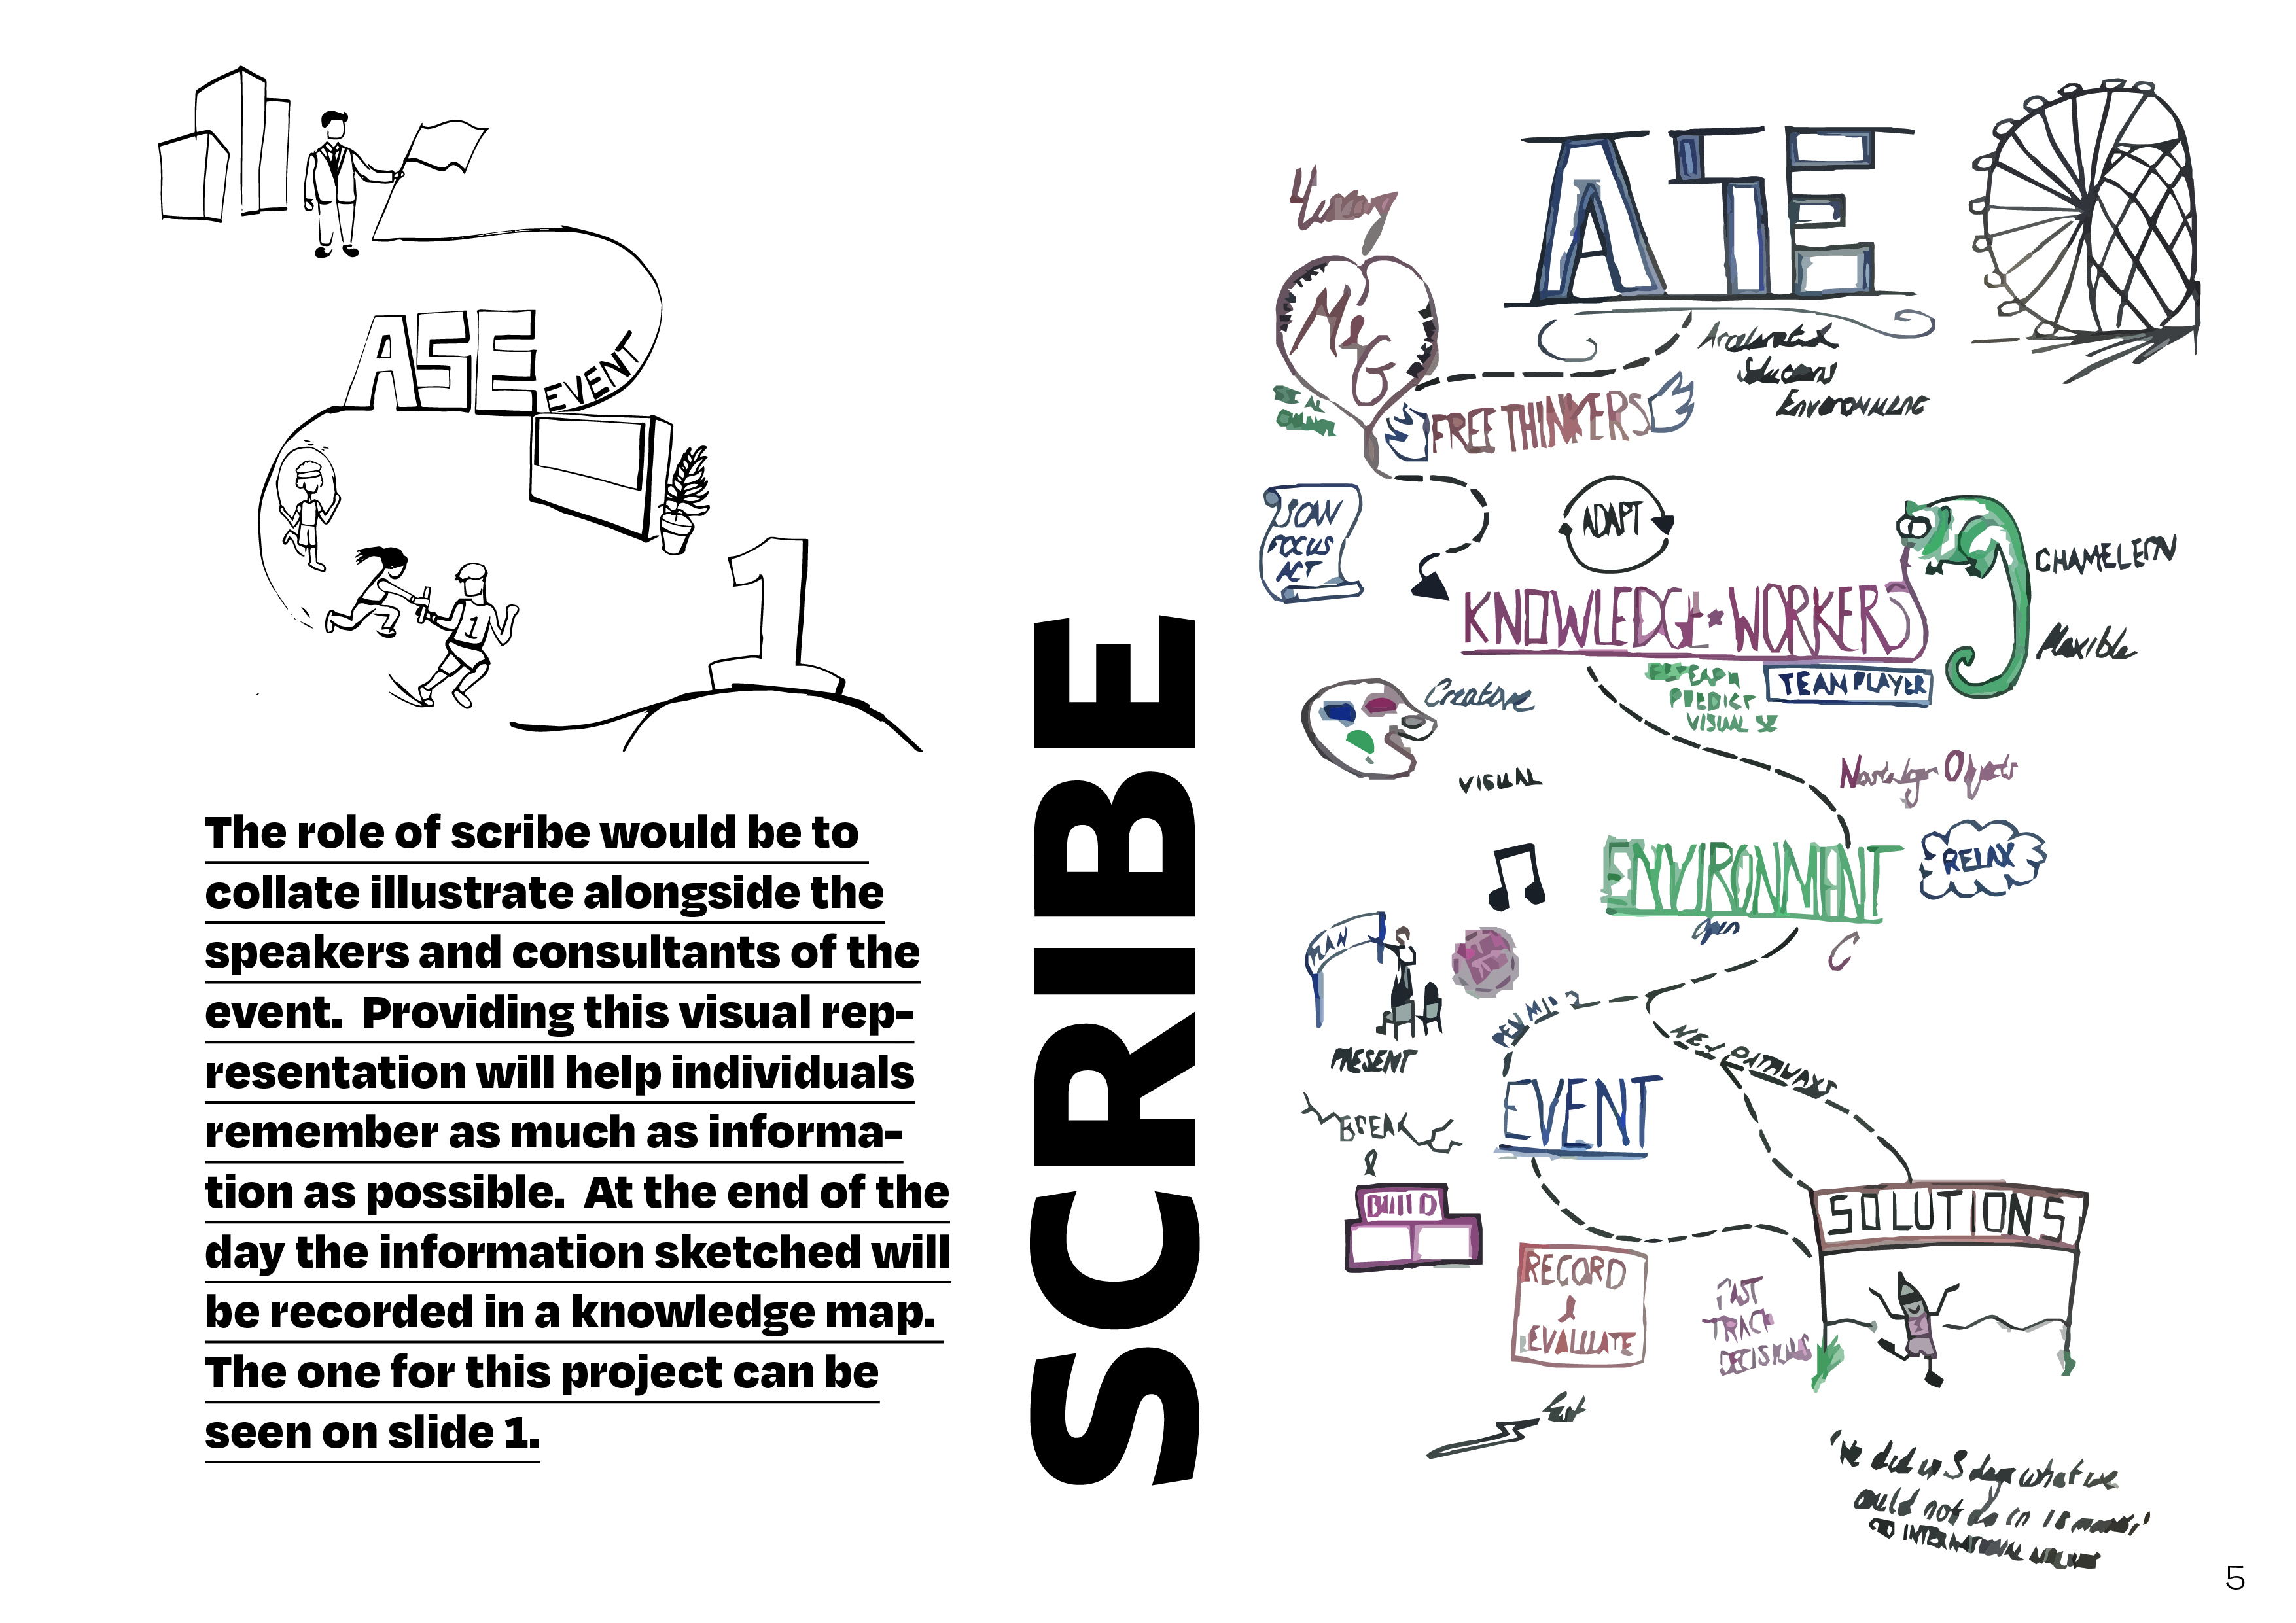 ASE
EVENT
1
1
The role of scribe would be to
collate illustrate alongside the
speakers and consultants of the
event.  Providing this visual rep-
resentation will help individuals
remember as much as informa-
tion as possible.  At the end of the
day the information sketched will
be recorded in a knowledge map.
The one for this project can be
seen on slide 1.
SCRIBE
ASE
Accelerated
Solutions
Environment
M&G
FREE THINKERS
SCAN
FOCUS
ACT
ADAPT
CHAMELEON
KNOWLEDGE WORKERS
Flexible
TEAM PLAYER
PREDICT
VISUAL
Creative
VISUAL
Nostalgic Objects
ENVIRONMENT
RELAX
Open
PLAN
PRESENT
NEW PATHWAYS
EVENT
BREAK
&
BUILD
SOLUTIONS
RECORD
&
EVALUATE
FAST
TRACK
DECISIONS
Fast
'We did in 3 days what we
could not do in 18 months'
INTERNATIONAL
5